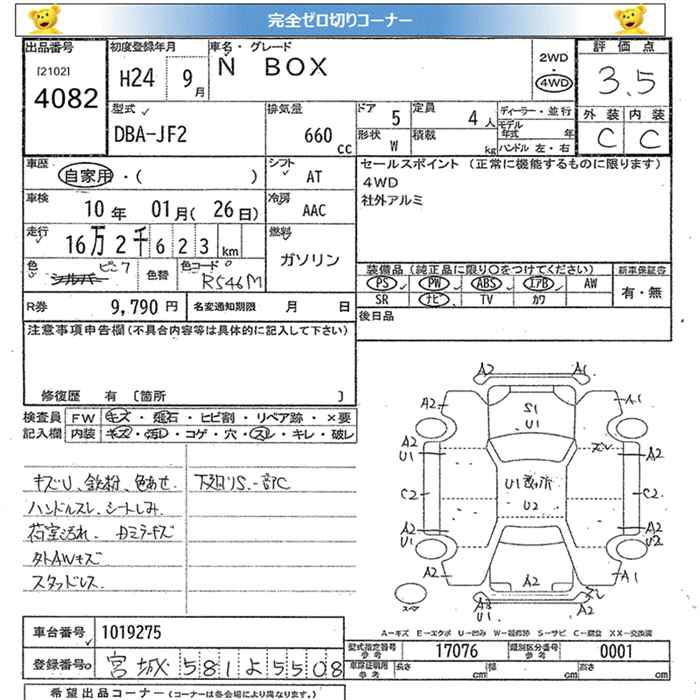 完全ゼロ切りコーナー
出品番号 初度登録年月 車名・グレード 評価点
[2102] 4082 H24 9月 N BOX 2WD 4WD 3.5
型式 排気量 ドア 定員 ディーラー・並行 外装 内装
DBA-JF2 660 cc 5 4人 モデル年式 年 C C
形状 W 積載 kg ハンドル 左・右
車歴 自家用・( ) シフト AT セールスポイント (正常に機能するものに限ります)
4WD
社外アルミ
車検 10年 01月(26日) 冷房 AAC
走行 16万2千623km 燃料 ガソリン
色 シルバー ピンク 色替 色コード R546M
装備品 (純正品に限り○をつけてください) 新車保証書
PS PW ABS エアB AW 有・無
SR ナビ TV カワ
R券 9,790円 名変通知期限 月 日 後日品
注意事項申告欄(不具合内容等は具体的に記入して下さい)
修復歴 有 [箇所 ]
検査員 FW キズ・飛石・ヒビ割・リペア跡・×要
記入欄 内装 キズ・汚レ・コゲ・穴・スレ・キレ・破レ
キズU、鉄粉、色あせ. 下廻りS.一部C
ハンドルスレ、シートしみ.
荷室汚れ.
外AWキズ
スタッドレス.
A2 A1
A2 A1
S1
U1
A2 U1 スレ A2
C2 U1 U2 C2
A2 U1 A2 U2
A2 A2 A1
スレ
スペア U1
A-キズ E-エクボ U-凹み W-補修跡 S-サビ C-腐食 XX-交換済
車台番号 1019275 型式指定番号 参考 17076 類別区分番号 参考 0001
登録番号 宮城 581 よ 5508 車庫証明用 参考 長さ cm 幅 cm 高さ cm
希望出品コーナー (コーナーは各会場により異なります。)